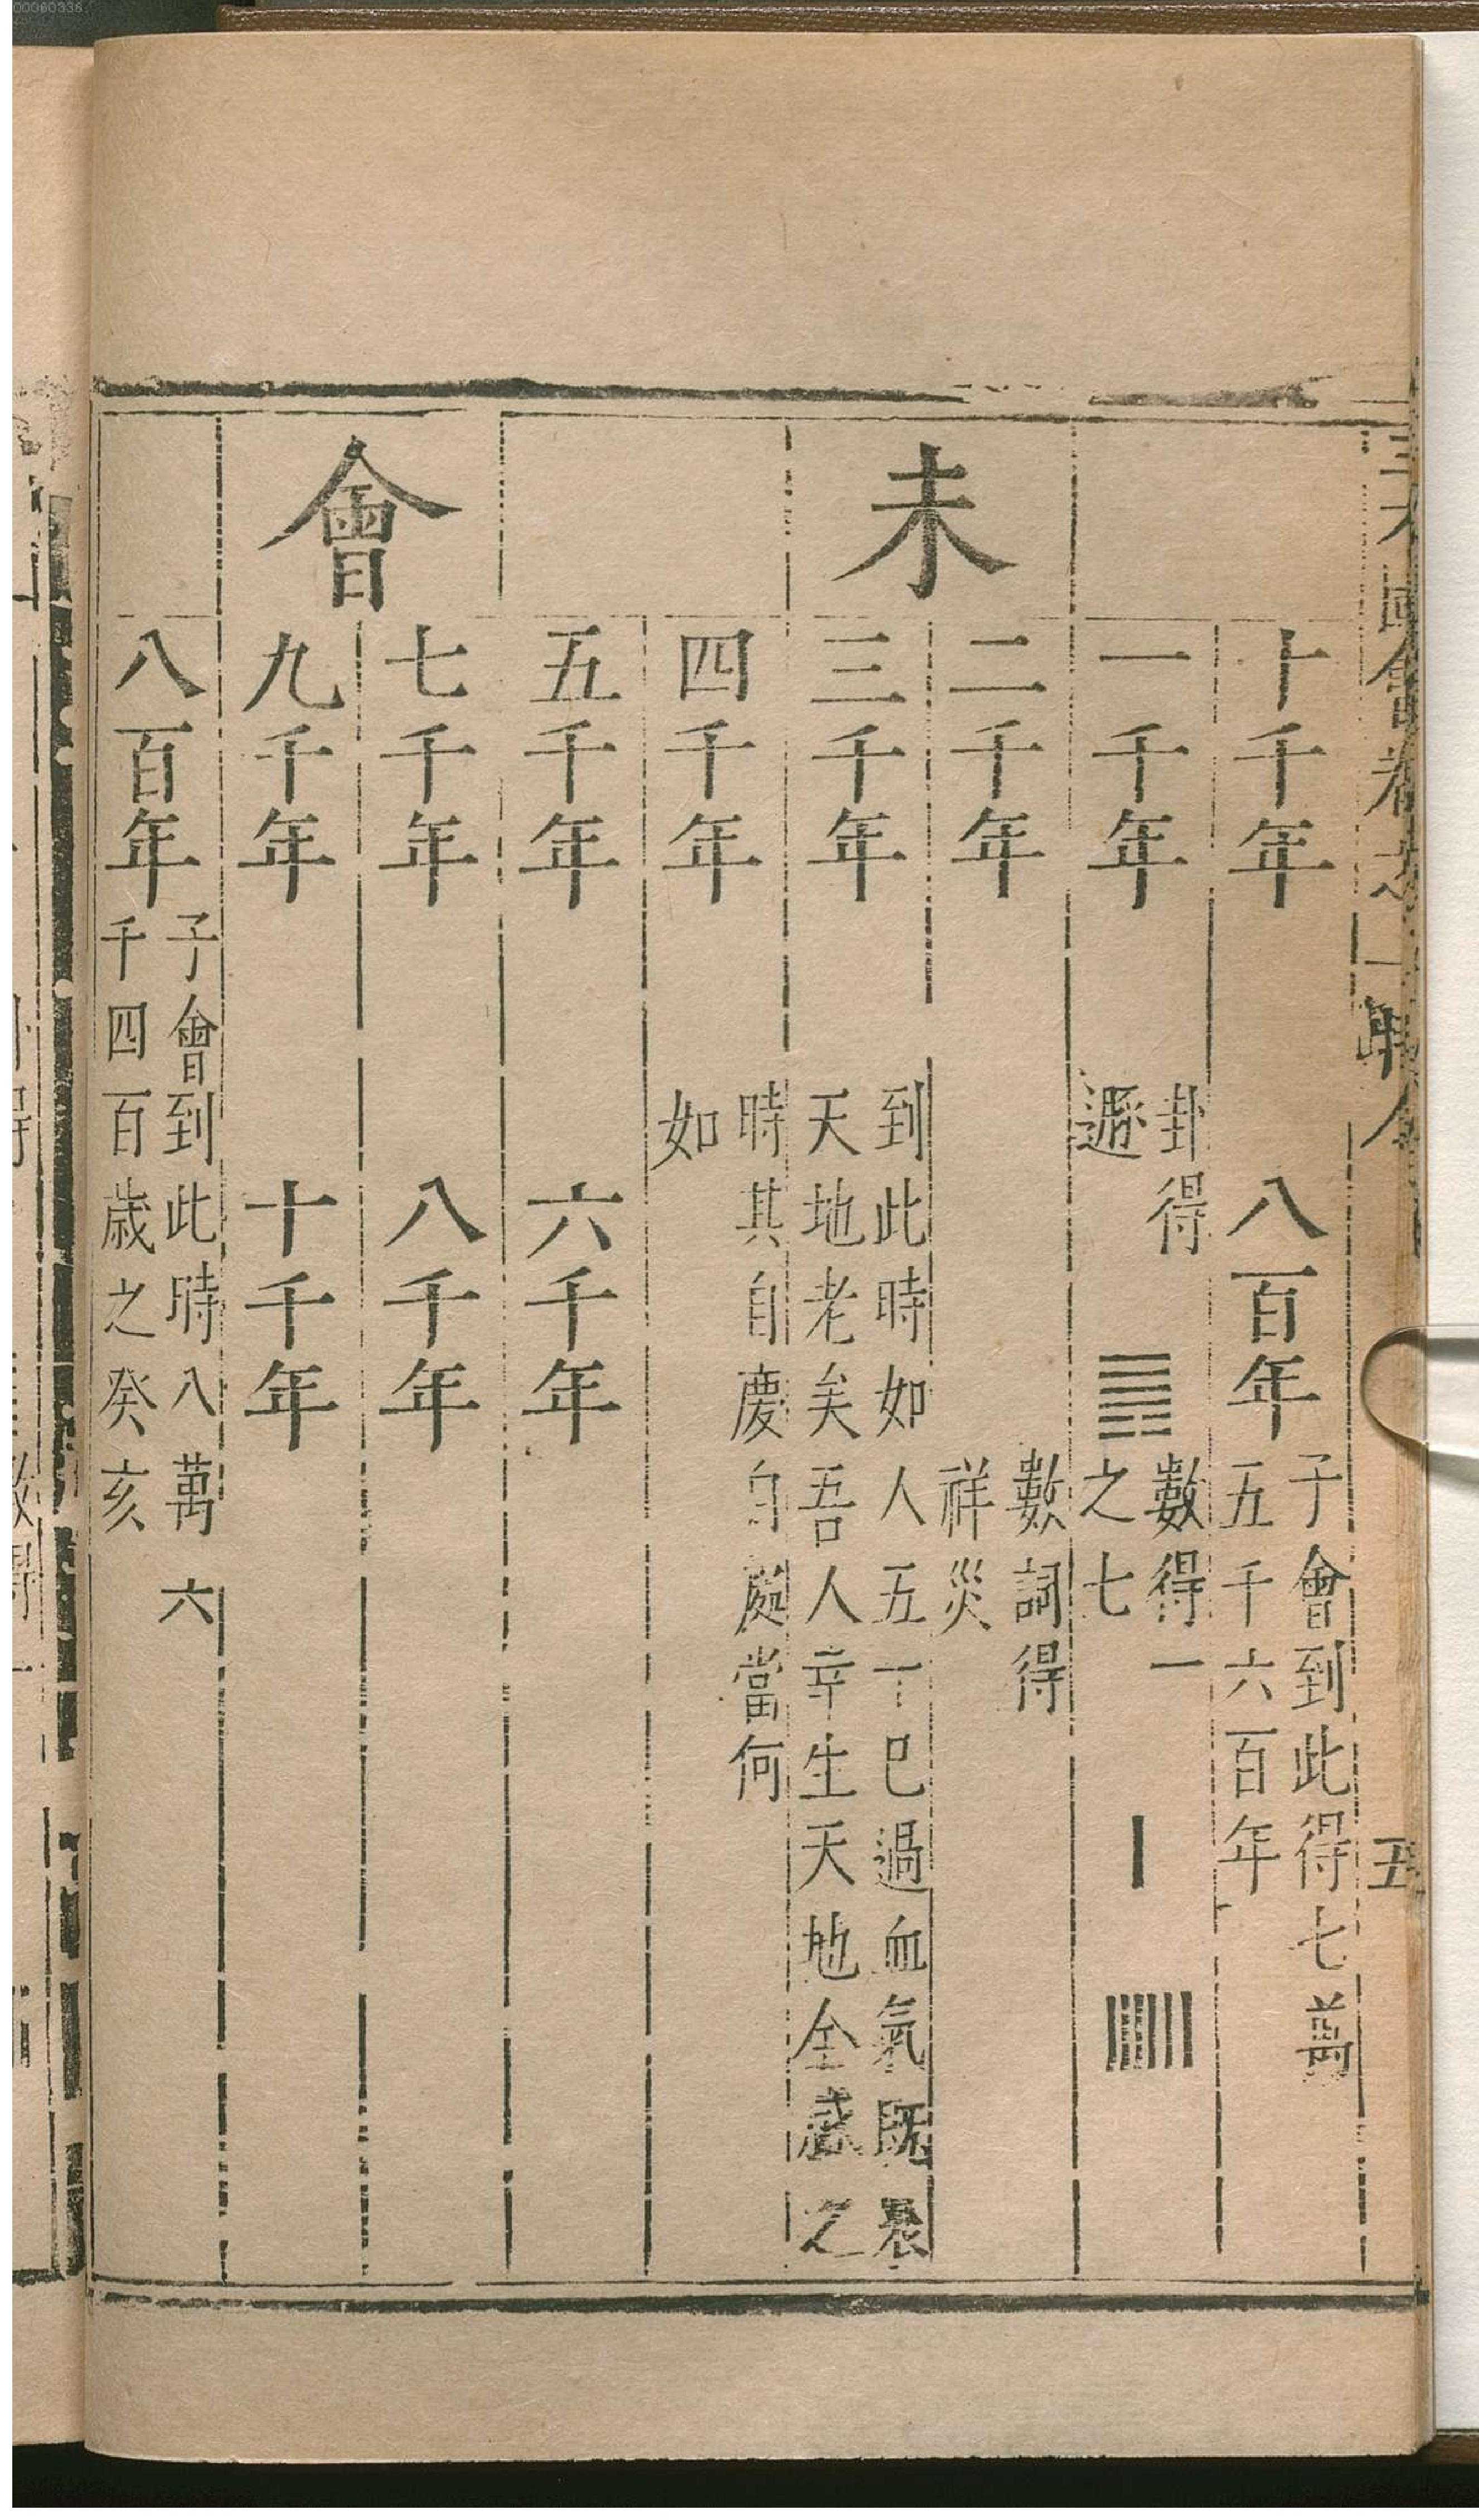 十千年 八百年 子會到此得七萬
五千六百年
未
一千年 卦得
遯 數得一
之七
二千年 數詞得
祥災
三千年 到此時如人五丁巳過血氣既衰
天地老矣吾人幸生天地全盛之
四千年 時其自慶自處當何
如
五千年 六千年
會
七千年 八千年
九千年 十千年
八百年 子會到此時八萬 六
千四百歲之癸亥
五
00060336